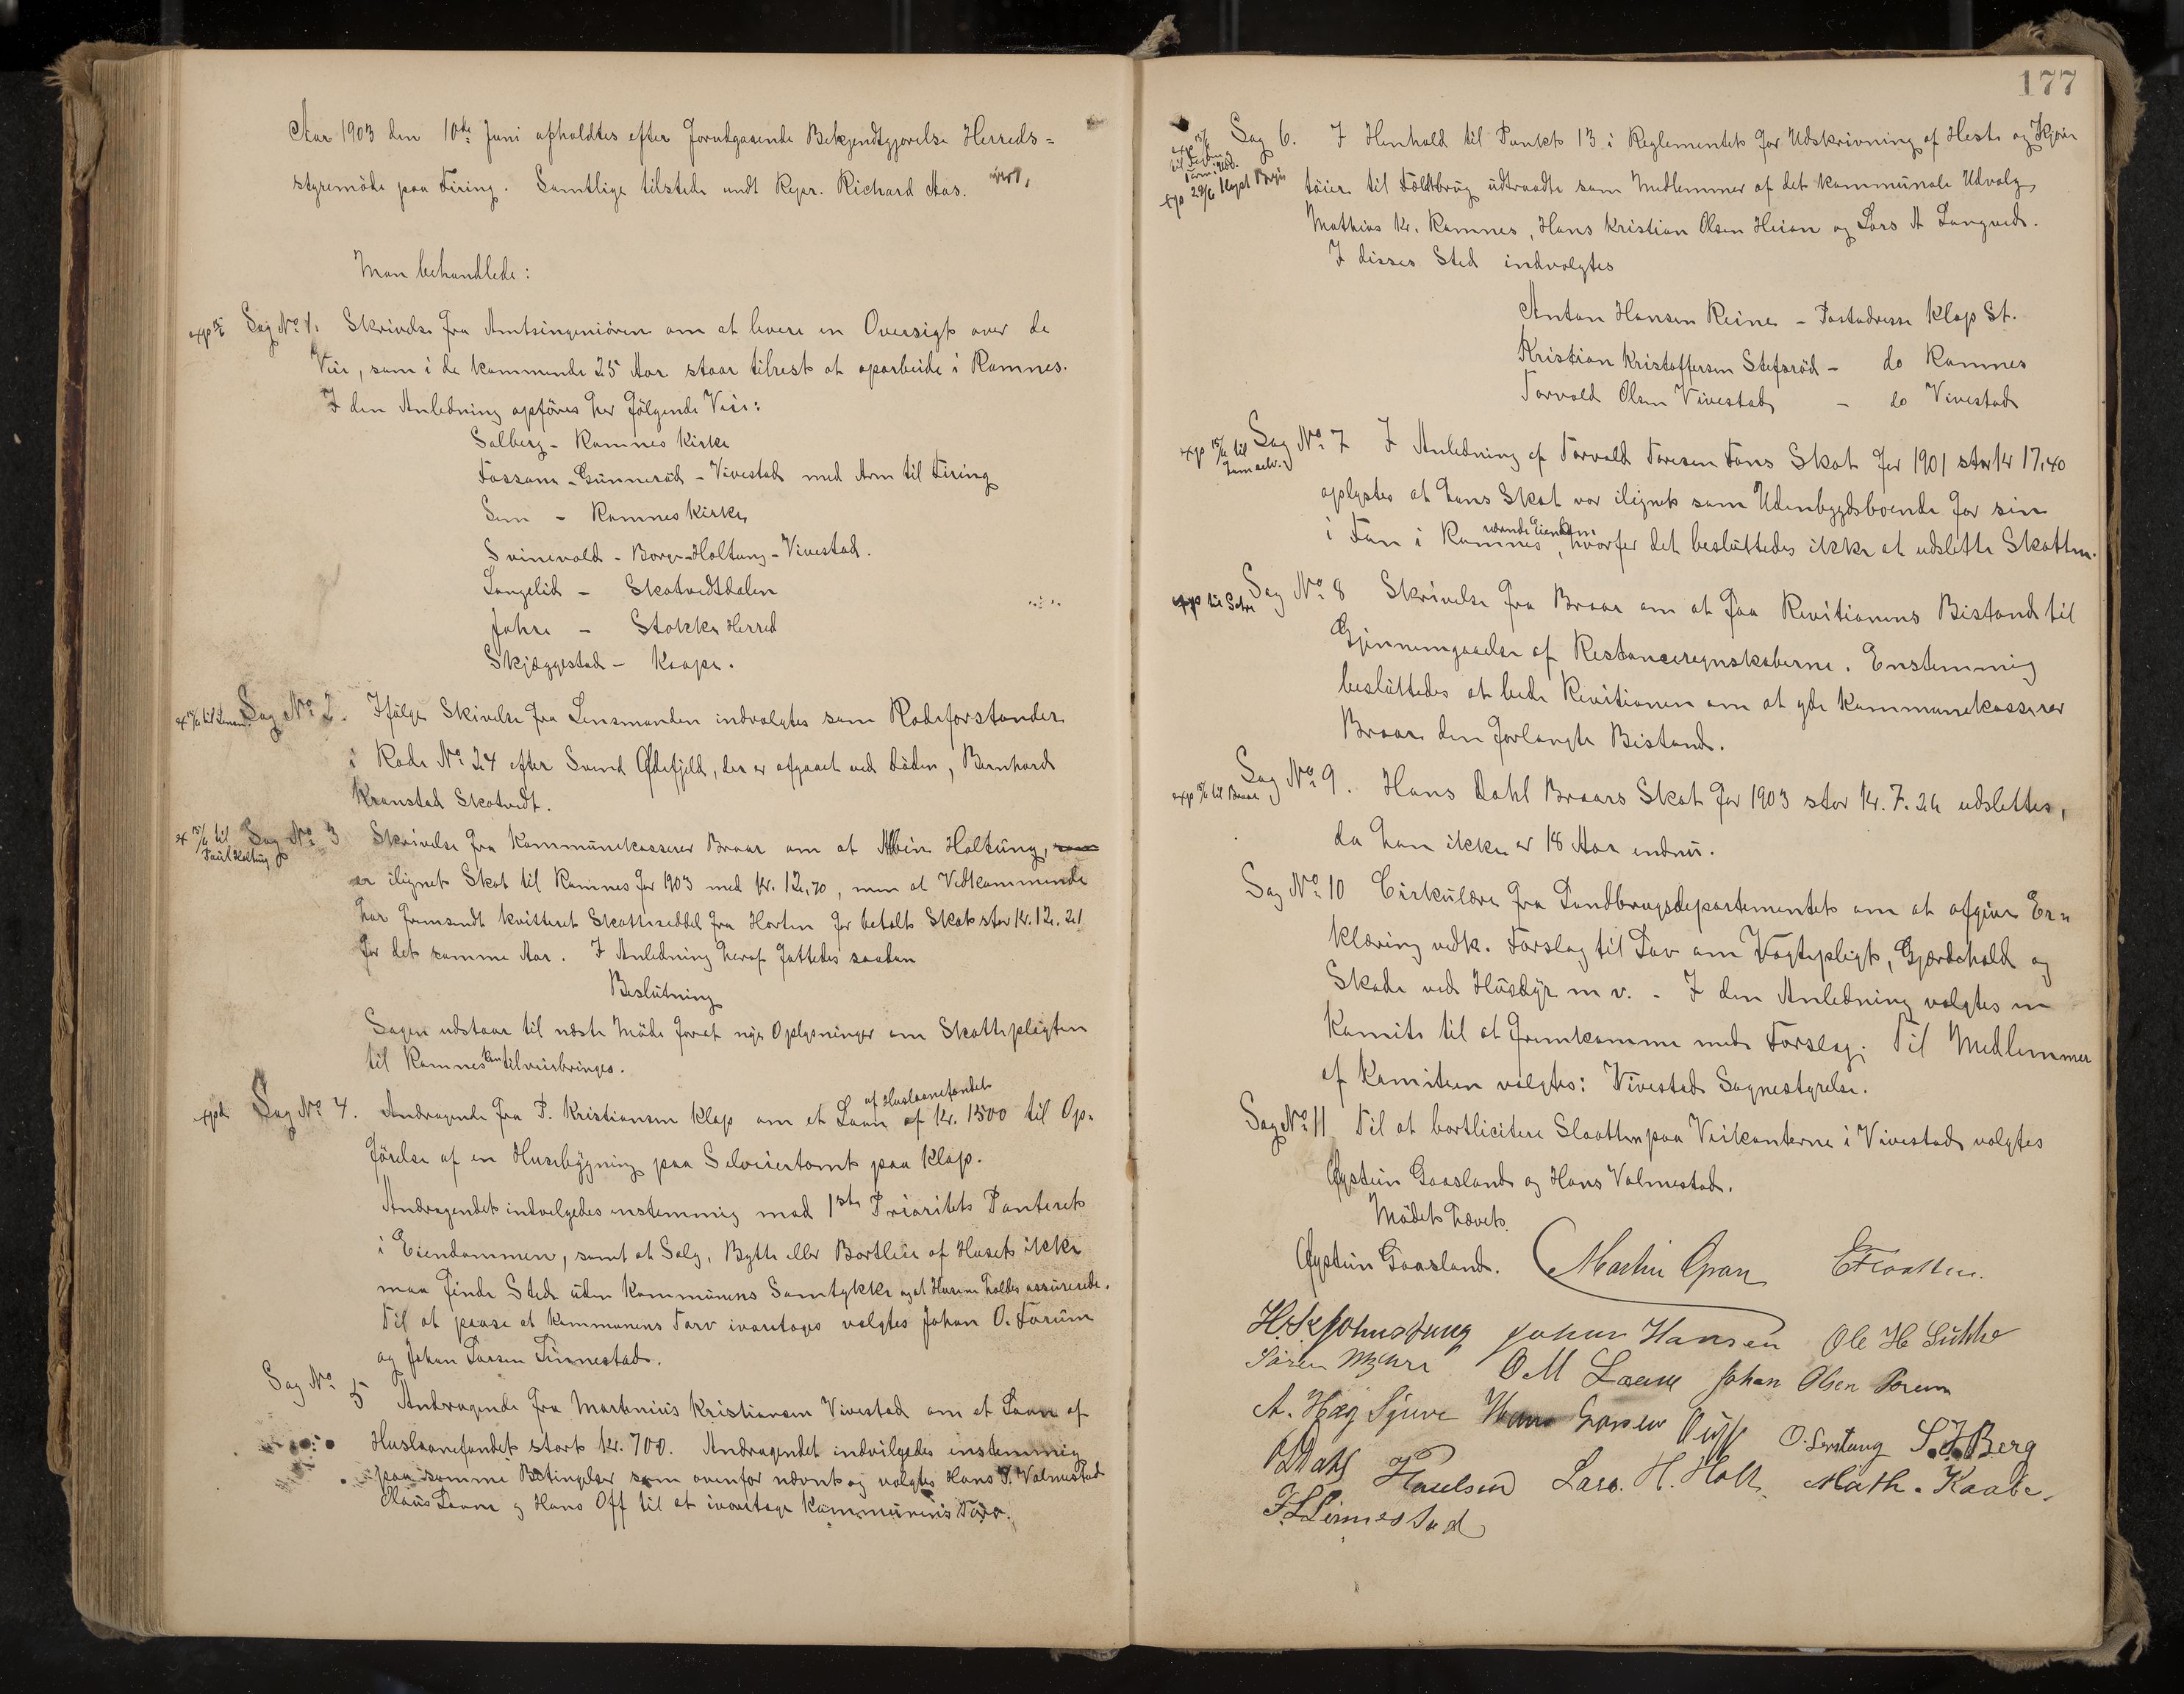 Aar 1903 den 10de Juni afholdtes efter forudgaaende Bekjendtgjørelse Herreds=
styremøde paa Firing. Samtlige tilstede undt Repr. Richard Aas.
Man behandlede:
Sag No 1. Skrivelse fra Amtsingeniøren om at levere en Oversigt over de
Veie, som i de kommende 25 Aar staar tilrest at oparbeide i Ramnes.
I den Anledning opføres her følgende Veie:
Solberg - Ramnes Kirke
Fossane - Gunnerød - Vivestad med Arm til Firing
Sem - Ramnes Kirke
Svinevold - Borge-Holtung - Vivestad.
Langelid - Skotvedtdalen
Jahre - Stokke Herred
Skjæggestad - Kaape.
ex 15/6 til Lensm. Sag No 2. Ifølge Skivelse fra Lensmanden indvalgtes som Rodeforstander
i Rode No 24 efter Svend Ødefjeld, der er afgaaet ved Døden, Bernhard
Kranstad Skotvedt.
ex 15/6 til Paul Holtung Sag No 3 Skrivelse fra Kommunekasserer Braar om at Albin Holtung,
er ilignet Skat til Ramnes for 1903 med Kr. 12,70, men at Vedkommende
har fremsendt kvitteret Skatteseddel fra Horten for betalt Skat stor Kr. 12.21
for det samme Aar. I Anledning heraf fattedes saadan
Beslutning
Sagen udstaar til næste Møde forat nye Oplysninger om Skattepligten
til Ramnes kan tilveiebringes.
expd Sag No 4. Andragende fra P. Kristiansen Klap om et Laan af Huslaanefondet af Kr. 1500 til Op=
førelse af en Husebygning paa Selveiertomt paa Klap.
Andragendet indvilgedes enstemmig mod 1ste Prioritets Panteret
i Eiendommen, samt at Salg, Bytte eller Bortleie af Huset ikke
maa finde Sted uden Kommunens Samtykke og at Husene holdes assurerede.
Til at paase at Kommunens Tarv ivaretages valgtes Johan O. Forum
og Johan Larsen Linnestad.
Sag No 5 Andragende fra Martinius Kristiansen Vivestad om et Laan af
Huslaanefondet stort Kr. 700. Andragendet indvilgedes enstemmig
paa samme Betingelser som ovenfor nævnt og valgtes Hans P. Valmestad
Olaus Laane og Hans Off til at ivaretage Kommunens Tarv.
177
Sag 6. I Henhold til Punkt 13 i Reglementet for Udskrivning af Heste og Kjøre
tøier til Feltbrug udtraadte som Medlemmer af det kommunale Udvalg
Mathias Kr. Ramnes, Hans Kristian Olsen Heian og Lars A Langved.
I disses Sted indvalgtes
Anton Hansen Reine - Postadresse Klap St.
Kristian Kristoffersen Stefsrød - do Ramnes
Torvald Olsen Vivestad - do Vivestad
exp 15/6 til Sag No 7 I Anledning af Torvald Foresen Fons Skat for 1901 stor Kr 17,40
oplystes at hans Skat var ilignet som Udenbygdsboende for sin
i Fon i Ramnes værende Eiendom, hvorfor det besluttedes ikke at udslette Skatten.
Sag No 8 Skrivelse fra Braar om at faa Revitionens Bistand til
Gjennemgaaelse af Restanceregnskaberne. Enstemmig
besluttedes at bede Revitionen om at yde Kommunekasserer
Braar den forlangte Bistand.
exp 15/6 til Braar Sag No 9. Hans Dahl Braars Skat for 1903 stor Kr. 7.26 udslettes,
da han ikke er 18 Aar endnu.
Sag No 10 Cirkulære fra Landbrugsdepartementet om at afgive Er=
klæring vedk. Forslag til Lov om Vogtepligt, Gjærdehold og
Skade ved Husdyr m v. - I den Anledning valgtes en
Komite til at fremkomme med Forslag. Til Medlemmer
af Komiteen valgtes: Vivestad Sognestyrelse.
Sag No 11 Til at bortlicitere Slaatten paa Veikanterne i Vivestad valgtes
Øystein Gaasland og Hans Valmestad.
Mødet hævet.
Øystein Gaasland. Martin Gran
Johan Hansen Ole H Lukke
Søren Myhre O M Laane Johan Olsen Forum
A. Høeg Sjuve O. Sertung S.J. Berg
O Dahl Paulsen Lars. H. Holt. Math. Kaabe.
J L Linnestad